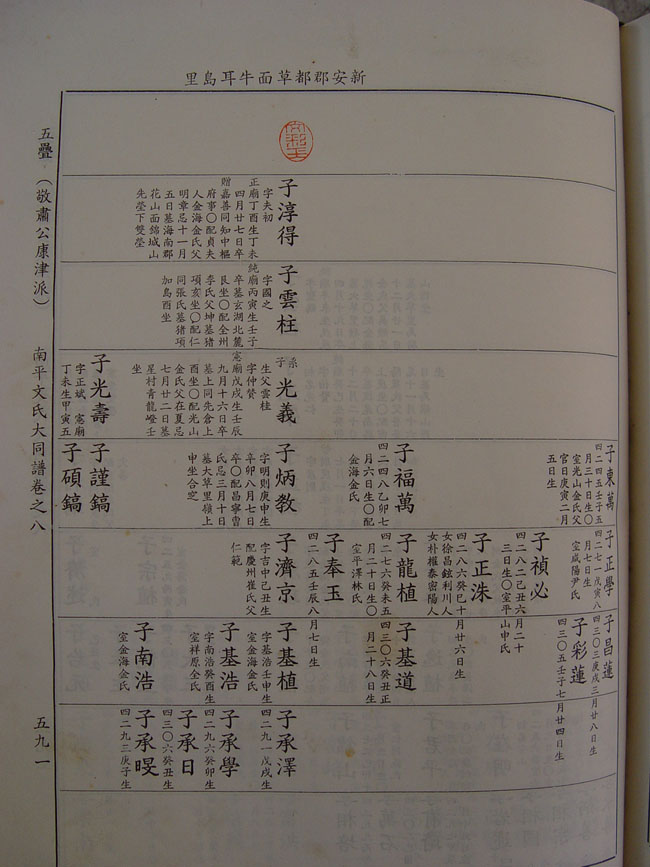 新安郡都草面牛耳島里
子淳得
字夫初
正廟丁酉生丁未
四月廿七日卒
贈嘉善同知中樞
府事〇配貞夫
人金海金氏父
明章忌十一月
五日墓海南郡
花山面錦城山
先塋下雙塋
子雲柱
字國之
純廟丙寅生壬子
卒墓玄湖北麓
艮坐〇配全州
李氏父坤墓猪
項亥坐〇配仁
同張氏墓猪項
加鳥酉坐
系子光義
生父雲桂
字仲贊
憲廟戊戌生壬辰
九月十六日卒
墓上同先倉上
酉坐〇配光山
金氏父在夏忌
七月廿二日墓
星村青龍嶝壬
坐
子光壽
字正斌 憲廟
丁未生甲寅五
子東萬
四二四五壬子五
月三十日生〇
室光山金氏父
官日庚寅二月
五日生
子福萬
四二四八乙卯七
月六日生〇配
金海金氏
子炳教
字明則庚申生
辛卯八月七日
卒〇配昌寧曺
氏忌三月十日
墓大草里嶺上
申坐合窆
子謹鎬
子碩鎬
子正學
四二七一戊寅八
月七日生〇
室咸陽尹氏
子禎必
四二八二己丑六月二十
三日生〇室平山申氏
子正洙
四二八六癸巳十月廿六日生
女徐昌鉉利川人
女朴權泰密陽人
子龍植
四二七六癸未五
月二十日生〇
室平澤林氏
子奉玉
四二八五壬辰八月七日生
子濟京
字吉中己丑生
配慶州崔氏父
仁範
子昌蓮
四三〇三庚戌三月廿八日生
子彩蓮
四三〇五壬子七月廿四日生
子基道
四三〇六癸丑正
月二十八日生
子基植
字基浩壬申生
室金海金氏
子基浩
字南浩癸酉生
室祥原全氏
子南浩
室金海金氏
子承澤
四二九一戊戌生
子承學
四二九六癸卯生
子承日
四三〇六癸丑生
子承旼
四二九三庚子生
五疊(敬肅公康津派) 南平文氏大同譜卷之八 五九一